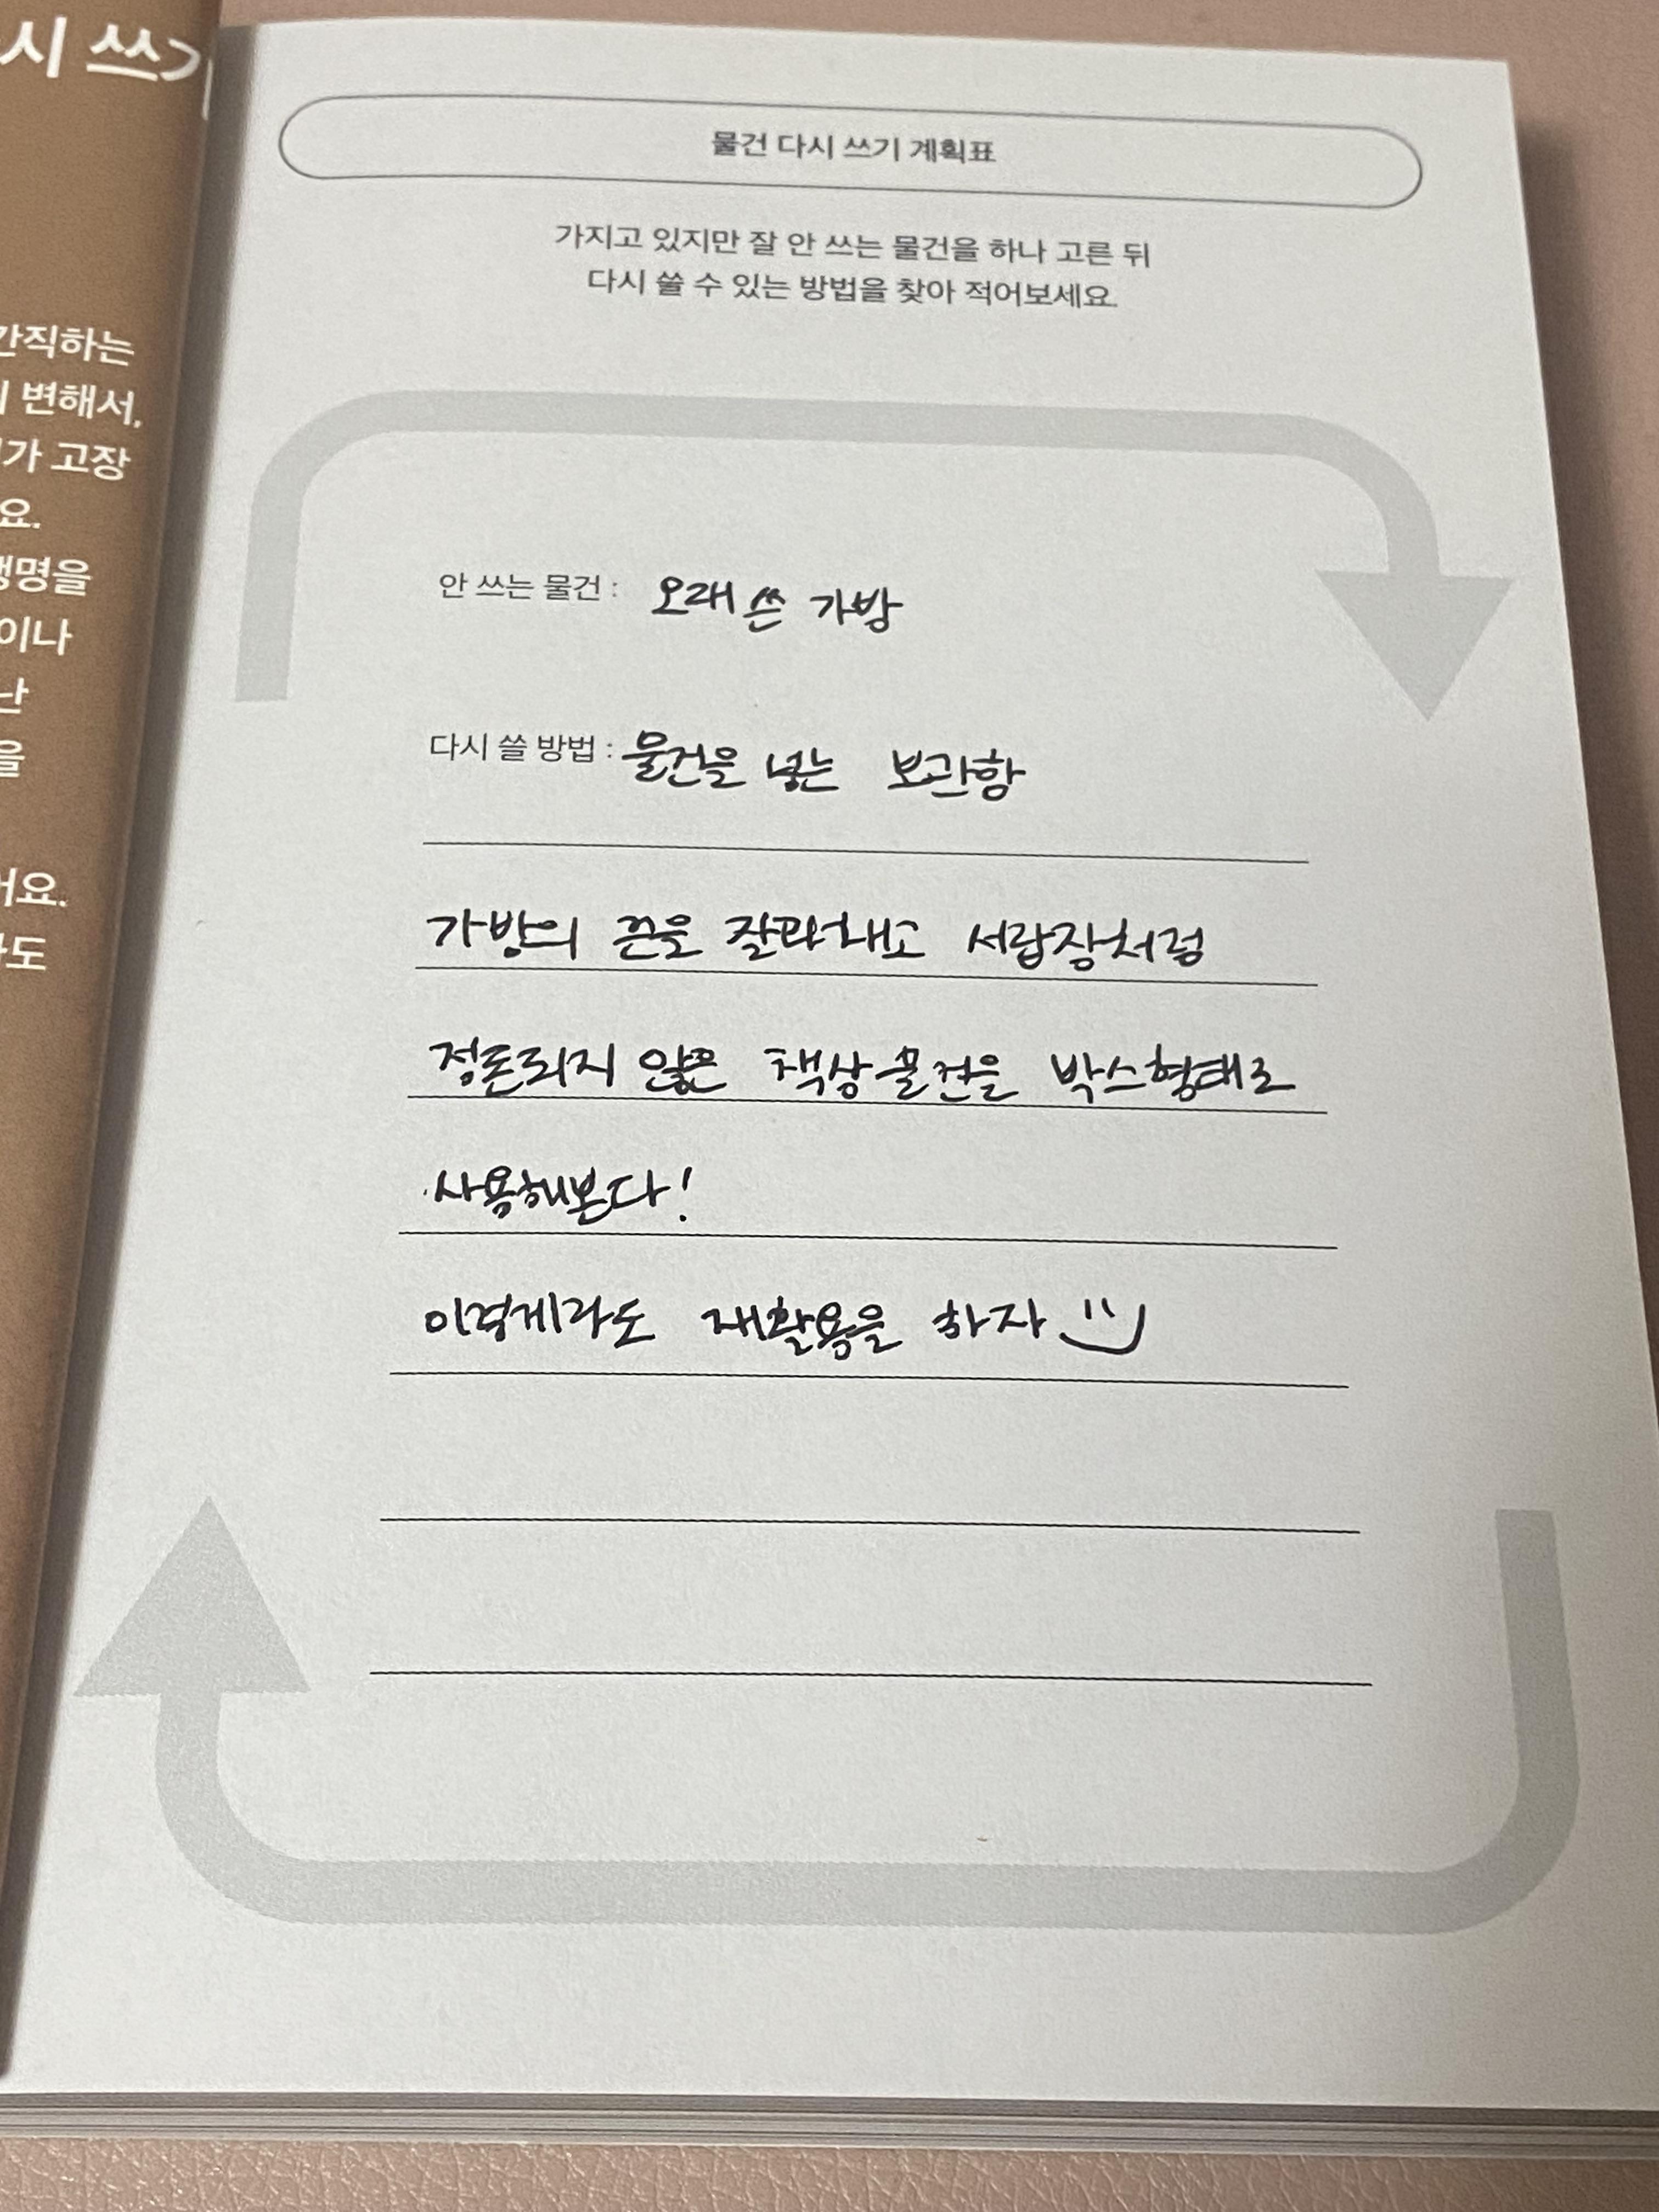 시 쓰기
간직하는
변해서,
가 고장
요.
생명을
이나
난
을
어요.
도
물건 다시 쓰기 계획표
가지고 있지만 잘 안 쓰는 물건을 하나 고른 뒤
다시 쓸 수 있는 방법을 찾아 적어보세요.
안 쓰는 물건 : 오래 쓴 가방
다시 쓸 방법 : 물건을 넣는 보관함
가방의 끈을 잘라내고 서랍장처럼
정돈되지 않은 책상 물건을 박스형태로
사용해본다!
이렇게라도 재활용을 하자